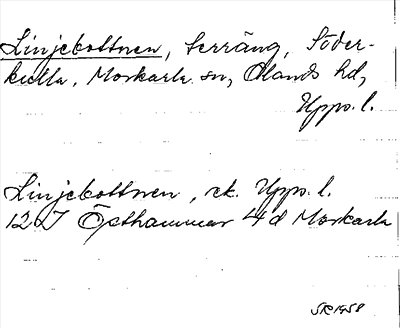 Linjebottnen, terräng, Söder-
kulla, Morkarla sn, Olands hd,
Upps. l.
Linjebottnen, ek. Upps. l.
12 I Östhammar 4d Morkarla
SR 1958